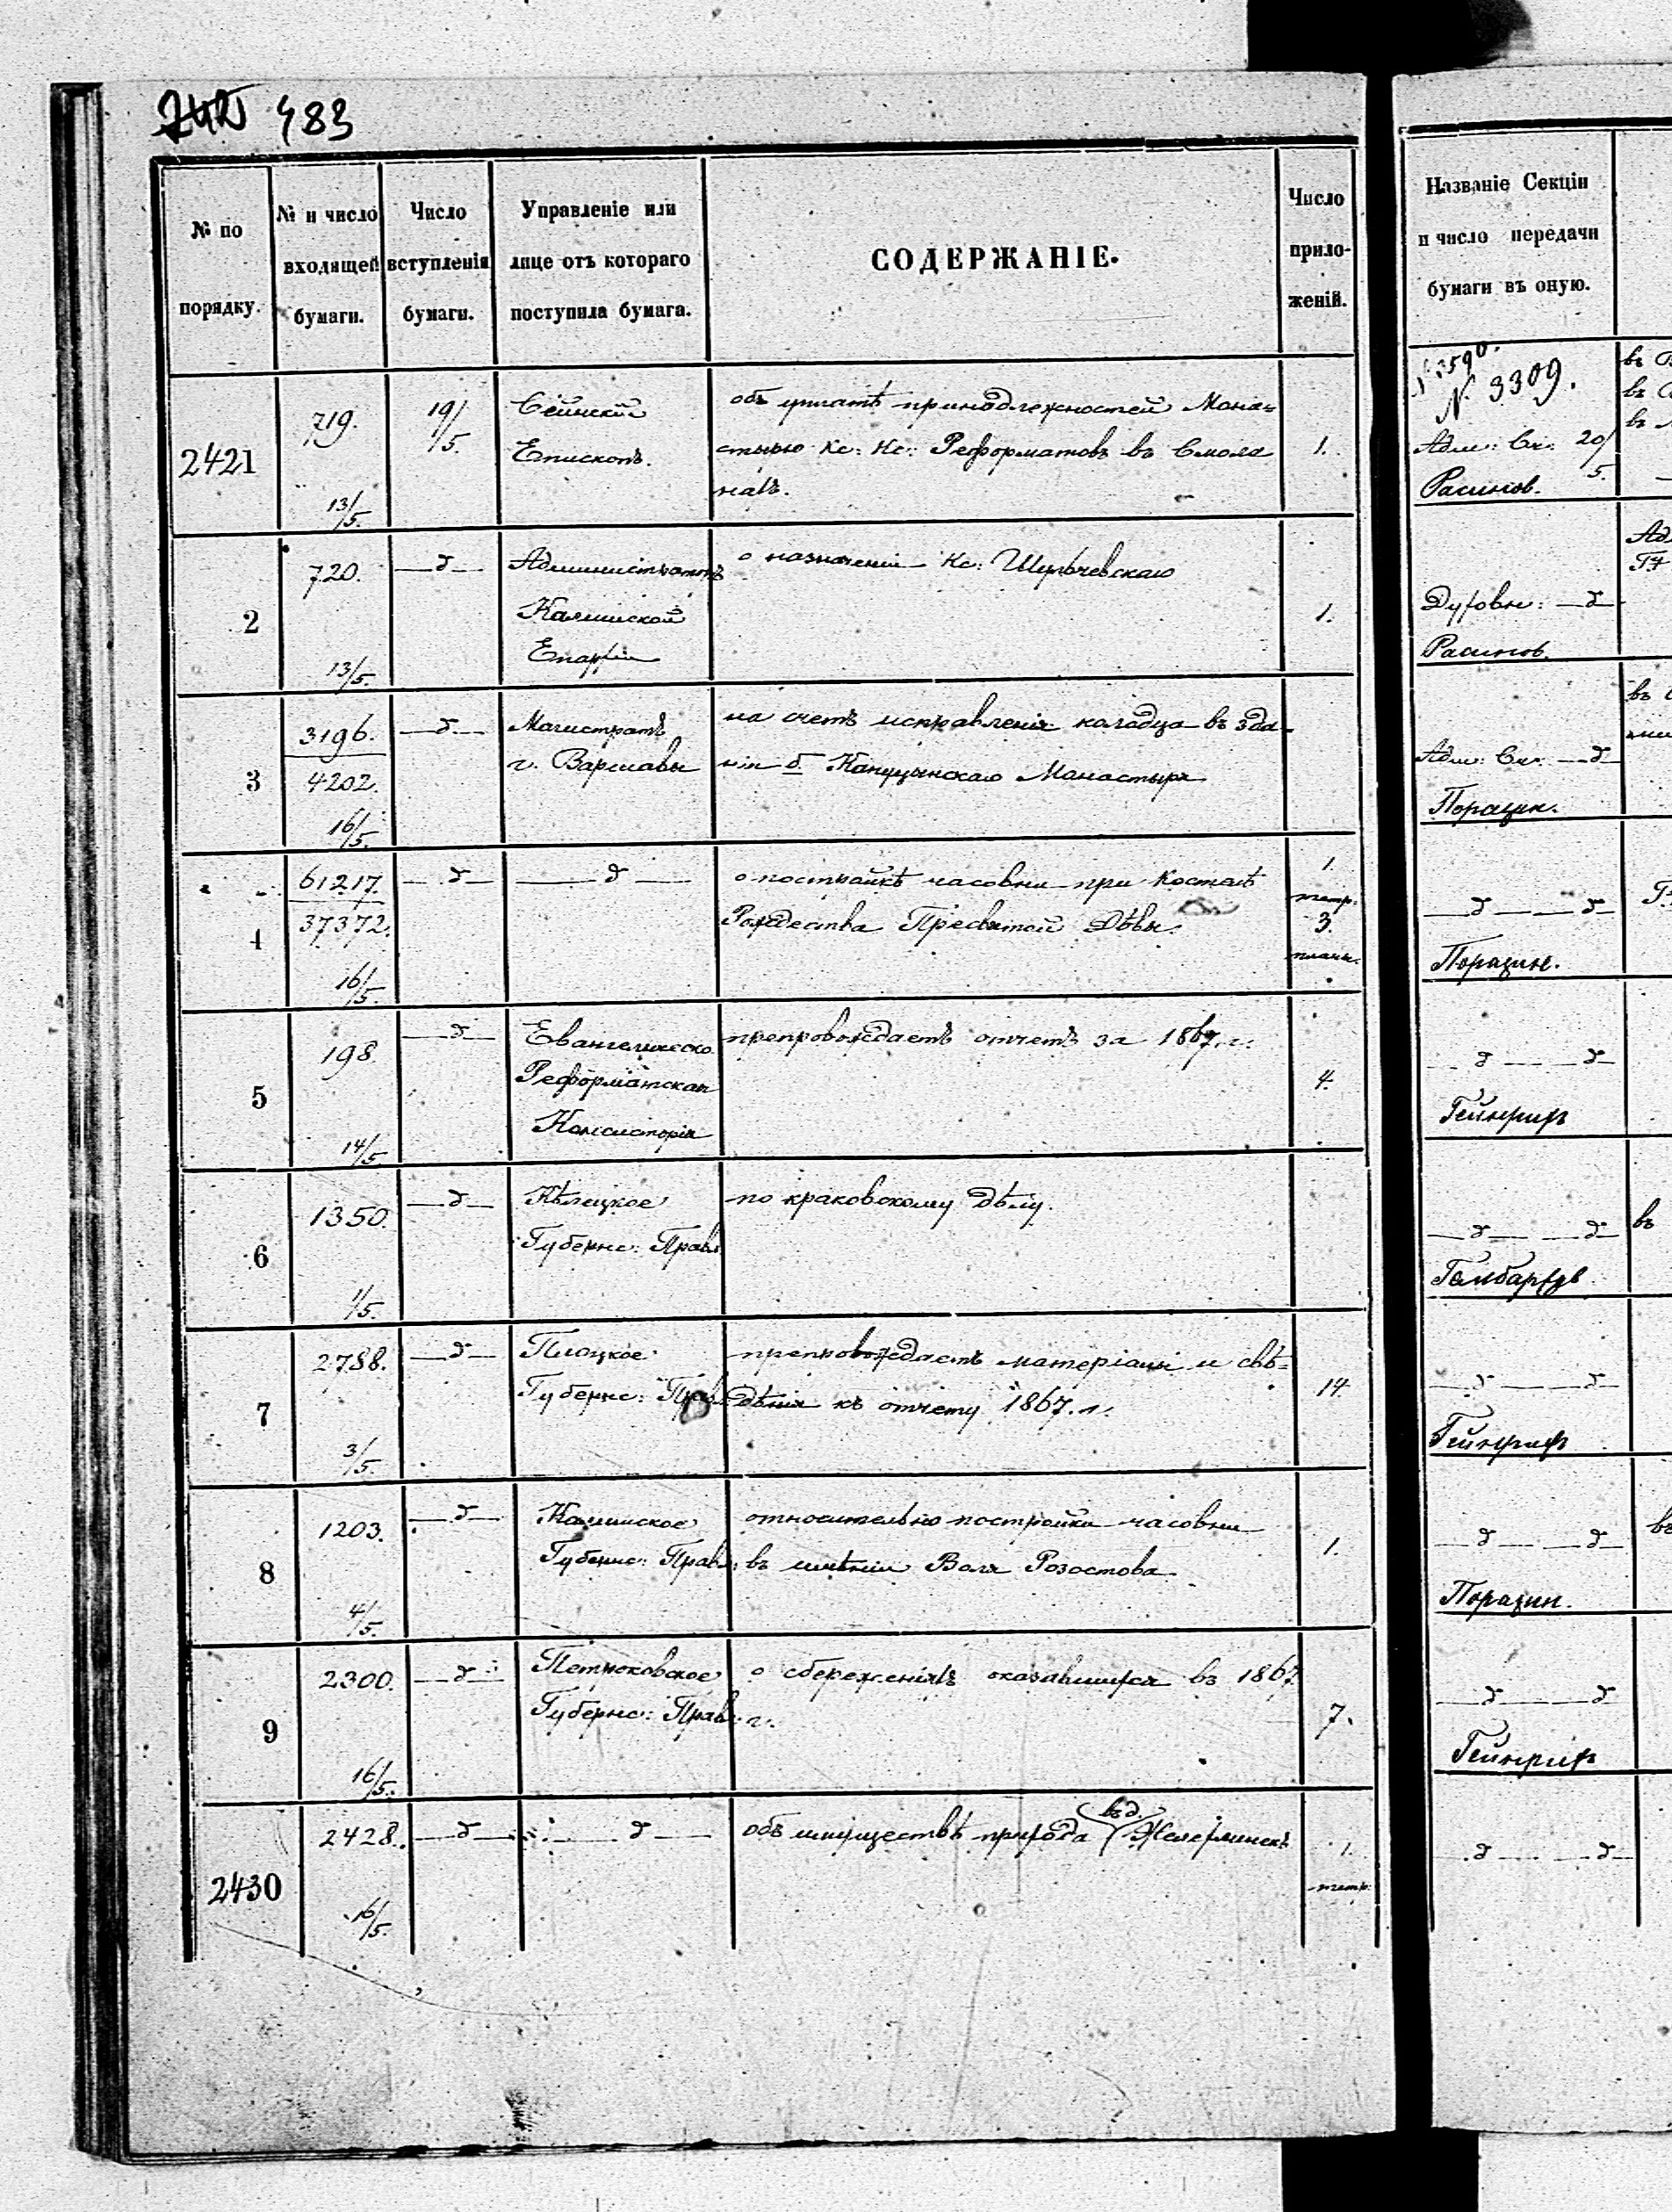 483
№ по порядку.
№ и число входящей бумаги.
Число вступленія бумаги.
Управленіе или лице отъ котораго поступила бумага.
СОДЕРЖАНІЕ.
Число приложеній.
Названіе Секціи и число передачи бумаги въ оную.
2421
719.
13/5.
19/5.
Сейнскій
Епископъ.
объ уплатѣ принадлежностей Мона=
стырю Кс: Кс: Реформатовъ въ Смоля
нахъ.
1.
№ 3590.
№ 3309.
Адм: Ск: 20/5.
Расинов.
2
720.
13/5.
— д —
Администраторъ
Калишской
Епархіи
о назначеніи Кс:
1.
Духовн: — д —
Расинов.
3
3196.
4202.
16/5.
— д —
Магистратъ
г. Варшавы
на счетъ исправленія колодца въ зда-
ніи б. Капуцынскаго Монастыря
Адм: Ск: — д
Поразин.
4
61217.
37372.
16/5.
— д —
— д —
о постройкѣ часовни при Костелѣ
Рождества Пресвятой Дѣвы.
1.
тетр:
3.
план.
— д — — д —
Поразин.
5
198.
14/5.
— д —
Евангелическо
Реформатская
Консисторія
препровождаетъ отчетъ за 1867 г.
4.
— д — — д —
Гейнрихъ
6
1350.
1/5.
— д —
Кѣлецкое
Губернс: Правл
по краковскому дѣлу.
— д — — д —
въ
7
2788.
3/5.
— д —
Плоцкое
Губернс: Правл
препровождаетъ матеріалы и свѣ=
дѣнія къ отчету 1867. г.
14
— д — — д —
Гейнрихъ
8
1203.
4/5.
— д —
Калишское
Губернс: Правл:
относительно постройки часовни
въ имѣніи Воля Розостова
1.
— д — — д —
Поразин.
9
2300.
16/5.
— д —
Петроковское
Губернс: Правл.
о сбереженіяхъ оказавшихся въ 1867
г.
7.
— д — — д —
Гейнрихъ
2430
2428.
16/5.
— д —
— д —
объ имуществѣ прихода въ д.
1.
тетр.
— д — — д —